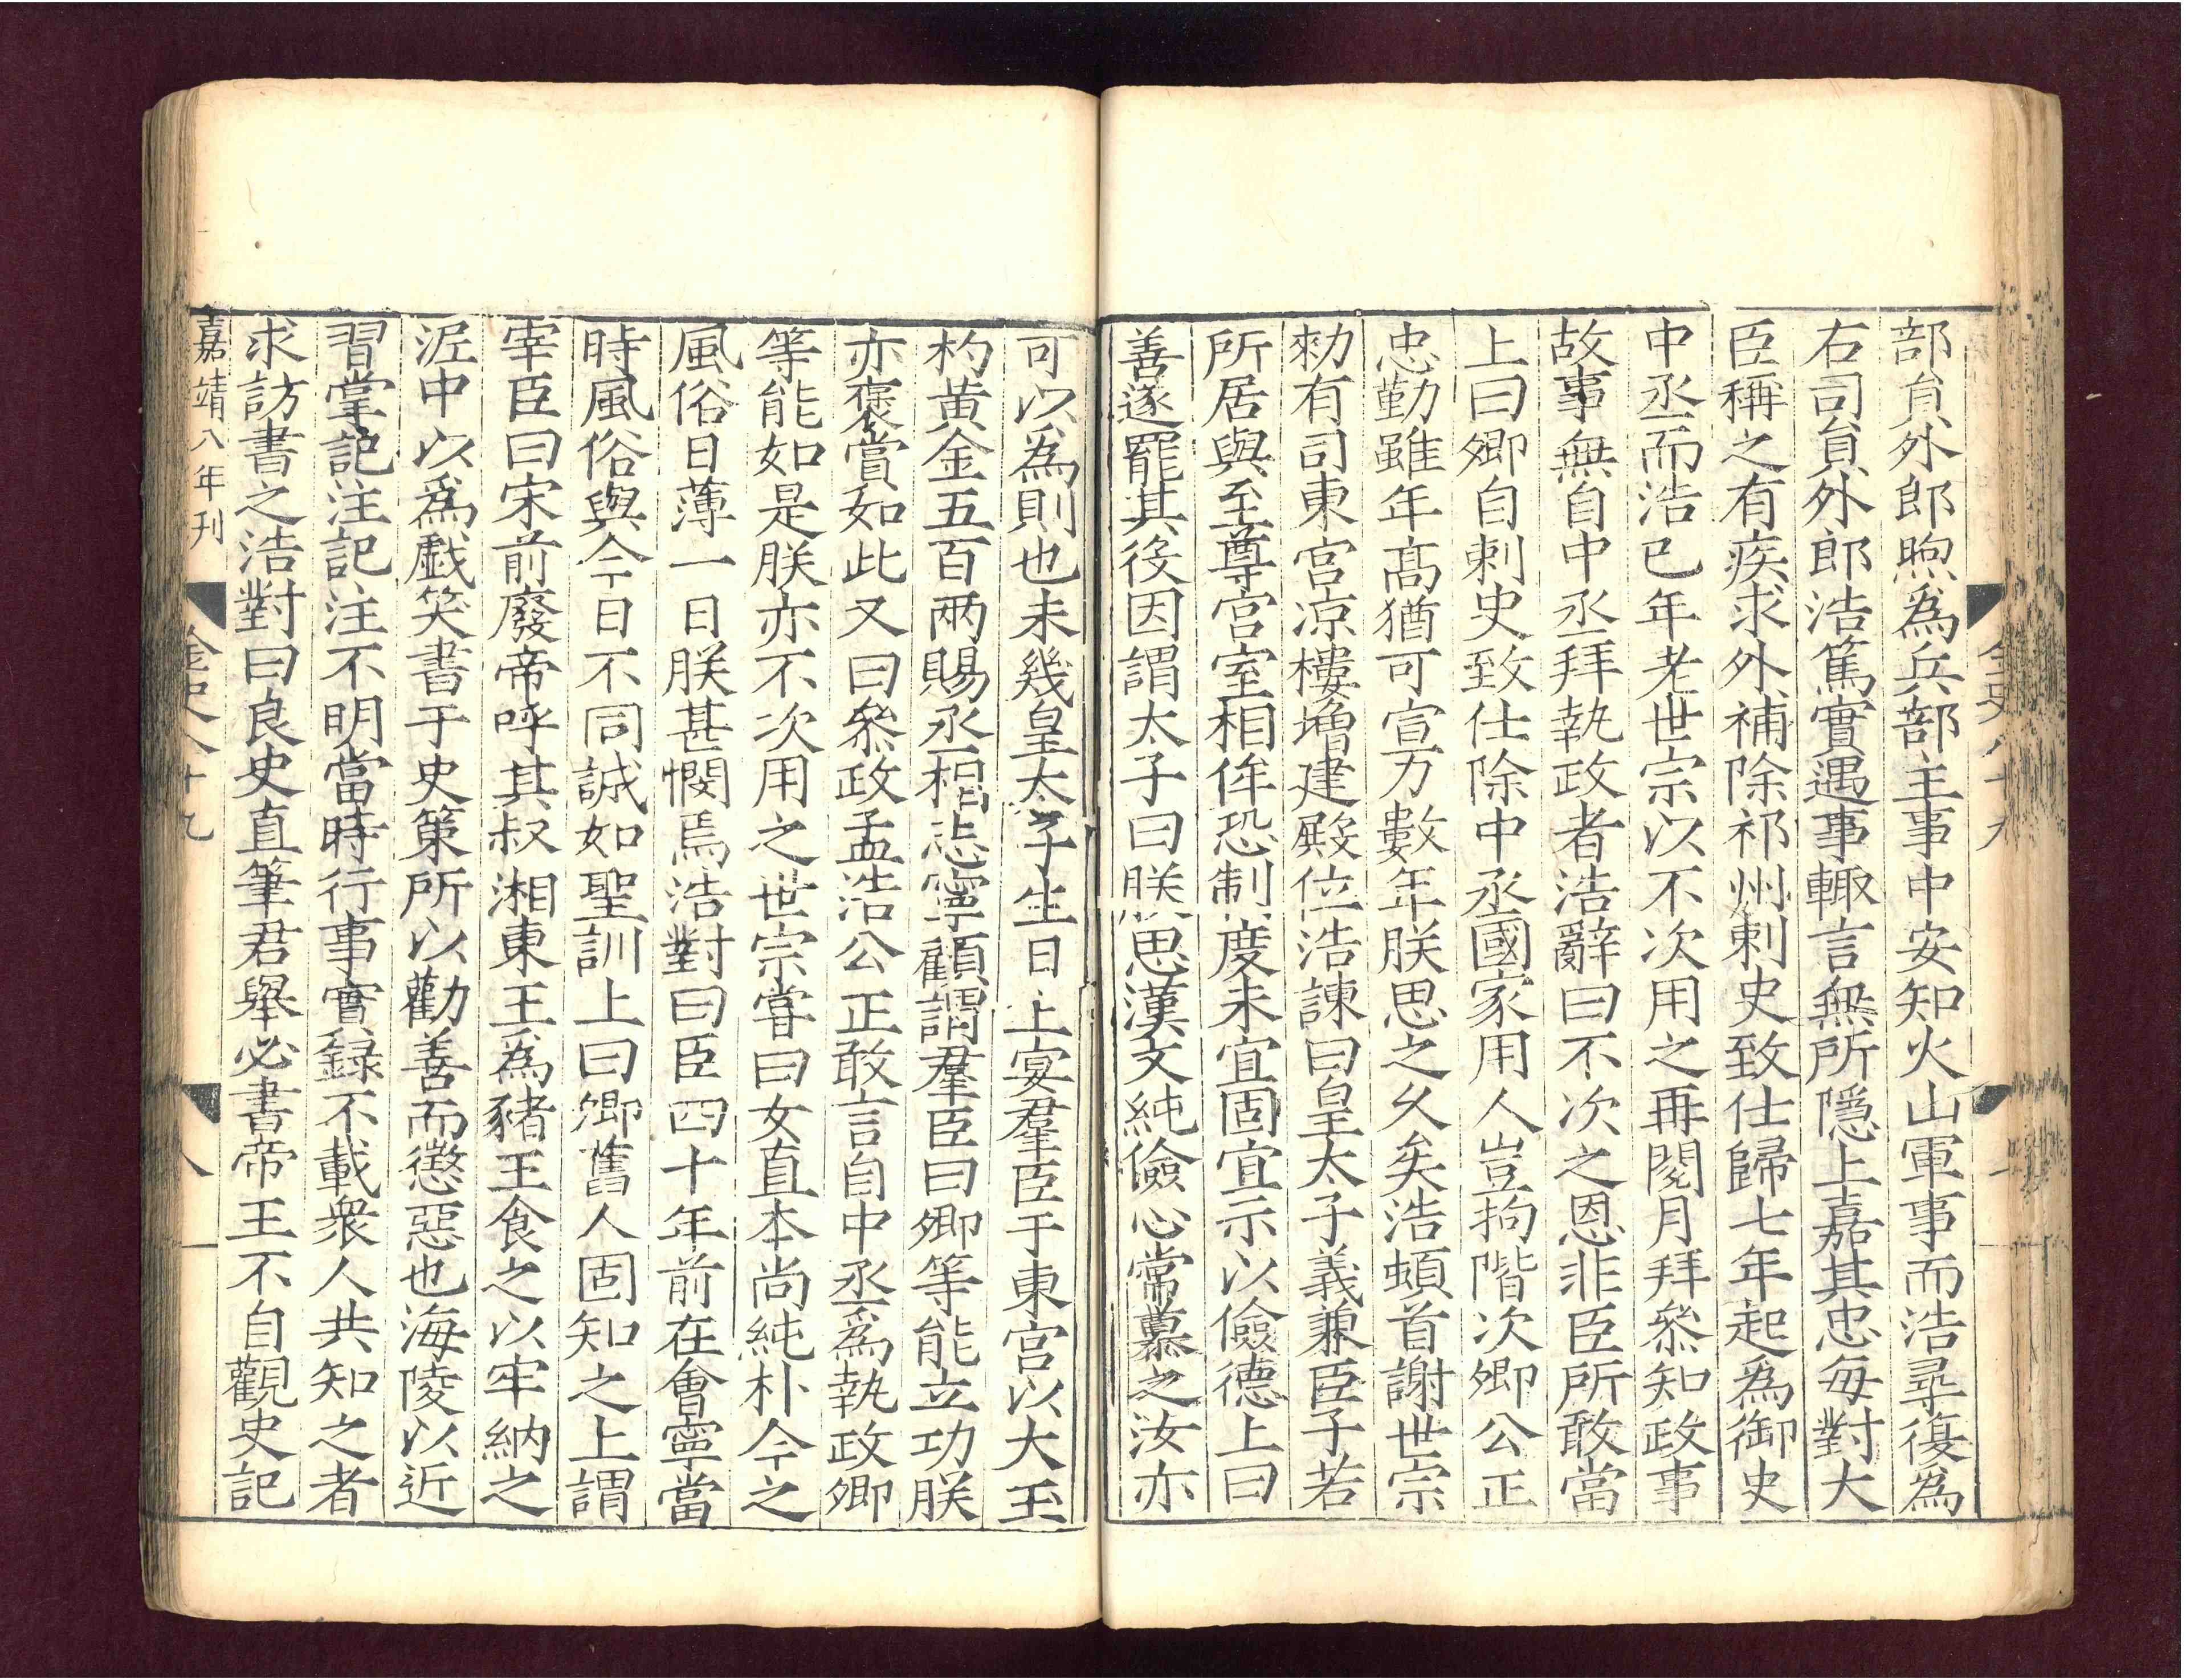 部貟外郎煦爲兵部主事中安知火山軍事而浩尋復爲
右司貟外郎浩篤實遇事輙言無所隱上嘉其忠每對大
臣稱之有疾求外補除祁州刺史致仕歸七年起爲御史
中丞而浩已年老世宗以不次用之再閱月拜叅知政事
故事無自中丞拜執政者浩辭曰不次之恩非臣所敢當
上曰卿自刺史致仕除中丞國家用人豈拘階次卿公正
忠勤雖年髙猶可宣力數年朕思之久矣浩頓首謝世宗
勑有司東宮凉樓增建殿位浩諫曰皇太子義兼臣子若
所居與至尊宮室相侔恐制度未宜固宜示以儉德上曰
善遂罷其後因謂太子曰朕思漢文純儉心常慕之汝亦
可以爲則也未幾皇太子生日上宴羣臣于東宮以大玉
杓黄金五百兩賜丞相志寧顧謂羣臣曰卿等能立功朕
亦褒賞如此又曰叅政孟浩公正敢言自中丞爲執政卿
等能如是朕亦不次用之世宗嘗曰女直本尚純朴今之
風俗日薄一日朕甚憫焉浩對曰臣四十年前在會寧當
時風俗與今日不同誠如聖訓上曰卿舊人固知之上謂
宰臣曰宋前廢帝呼其叔湘東王爲豬王食之以牢納之
泥中以爲戱笑書于史策所以勸善而懲惡也海陵以近
習掌記注記注不明當時行事實録不載衆人共知之者
求訪書之浩對曰良史直筆君舉必書帝王不自觀史記
嘉靖八年刊
金史八十九
八